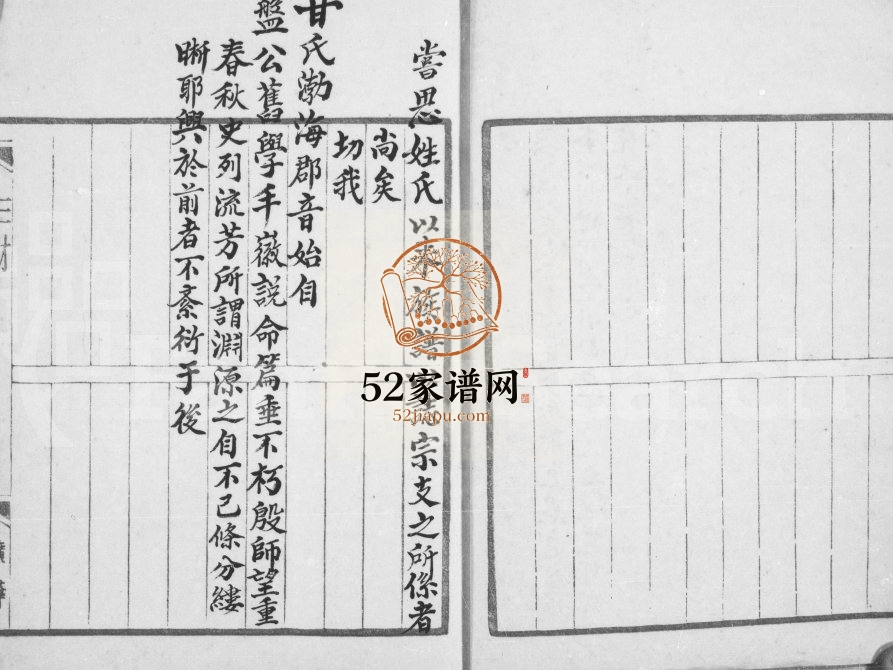 嘗思姓氏以来族譜宗支之所係者
尚矣
切我
甘氏渤海郡音始自
盤公舊學手嶶説命篇垂不朽殷師望重
春秋史列流芳所謂淵源之自不已條分縷
晰耶興於前者不紊衍于後
52家谱网
52jiapu.com